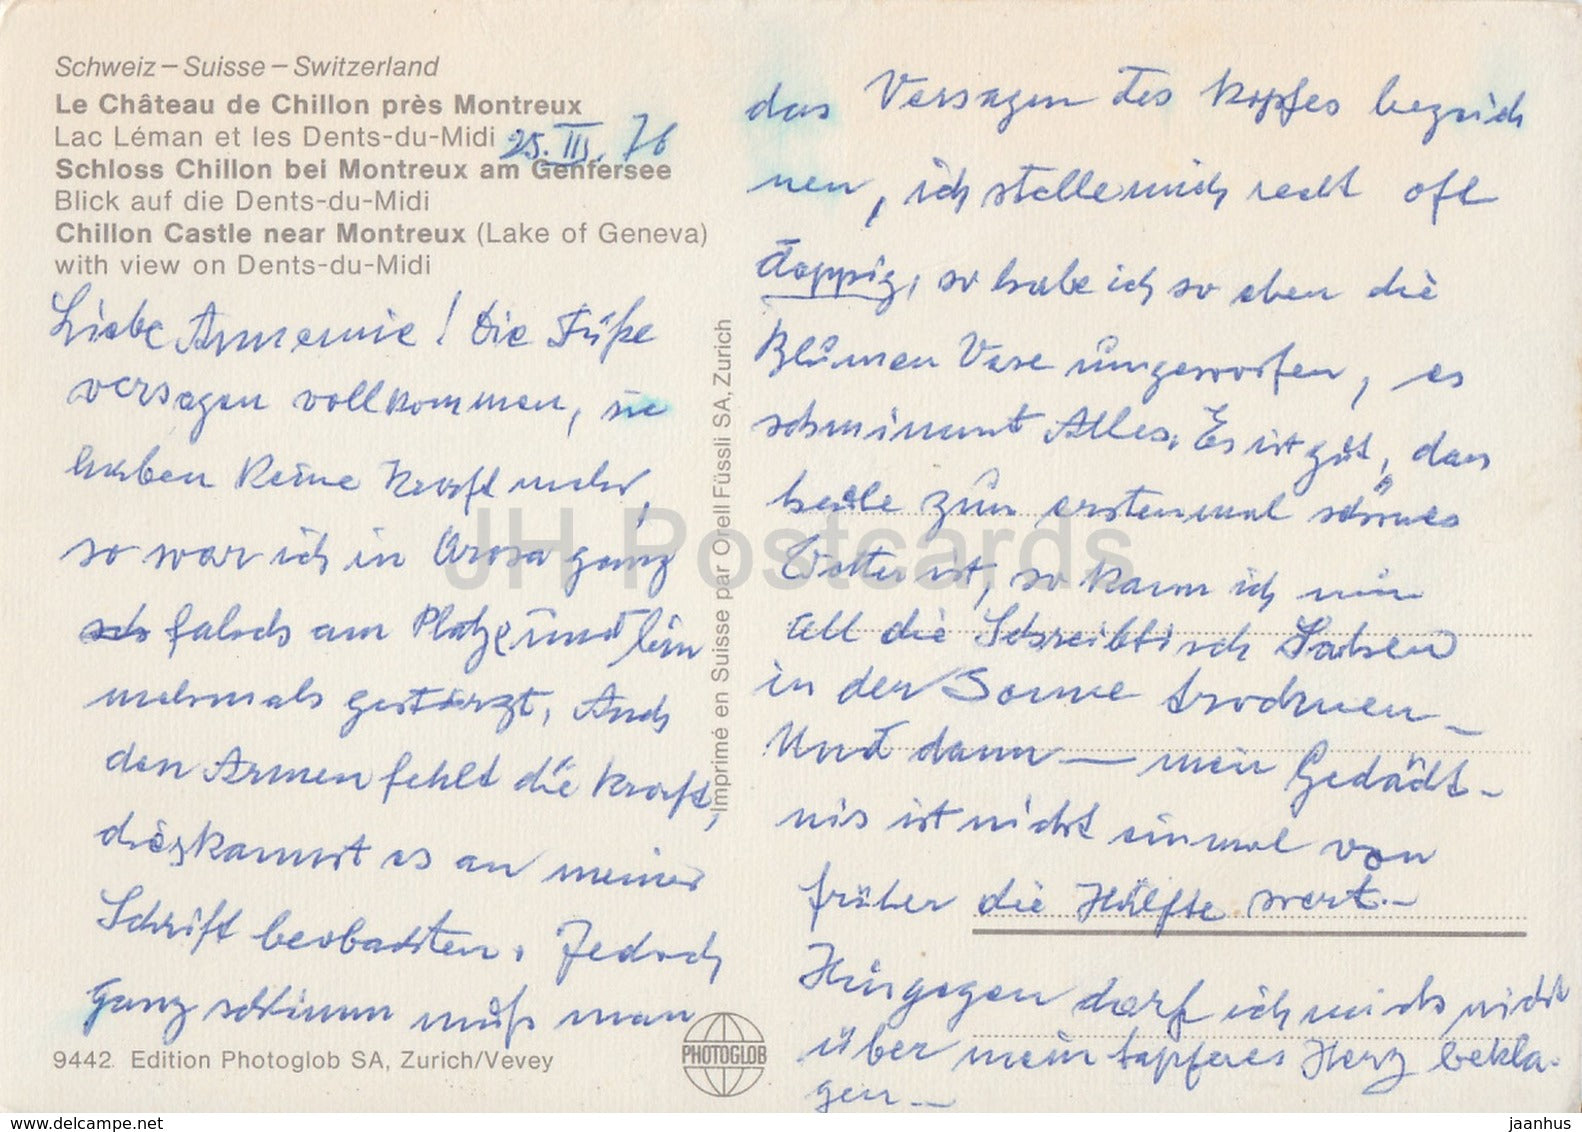 Schweiz – Suisse – Switzerland
Le Château de Chillon près Montreux
Lac Léman et les Dents-du-Midi
25. III. 76
Schloss Chillon bei Montreux am Genfersee
Blick auf die Dents-du-Midi
Chillon Castle near Montreux (Lake of Geneva)
with view on Dents-du-Midi
Liebe Annemie! Die Füße
versagen vollkommen, sie
haben keine Kraft mehr,
so war ich in Arosa ganz
falsch am Platze und bin
mehrmals gestürzt. Auch
den Armen fehlt die Kraft,
dies kannst es an meiner
Schrift beobachten. Jedoch
Ganz schlimm muß man
9442 Edition Photoglob SA, Zurich/Vevey
PHOTOGLOB
Imprimé en Suisse par Orell Füssli SA, Zurich
das Versagen des Kopfes bezeich
nen, ich stelle mich recht oft
doppig, so habe ich so eben die
Blumen Vase umgeworfen, es
schwimmt Alles. Es ist gut, das
heute zum erstenmal schönes
Wetter ist, so kann ich nun
all die Schreibtisch Sachen
in der Sonne trocknen –
Und dann — mein Gedächt-
nis ist nicht einmal von
früher die Hälfte wert. –
Hingegen darf ich mich nicht
über mein tapferes Herz bekla-
gen –
JH Postcards
delcampe.net
jaanhus